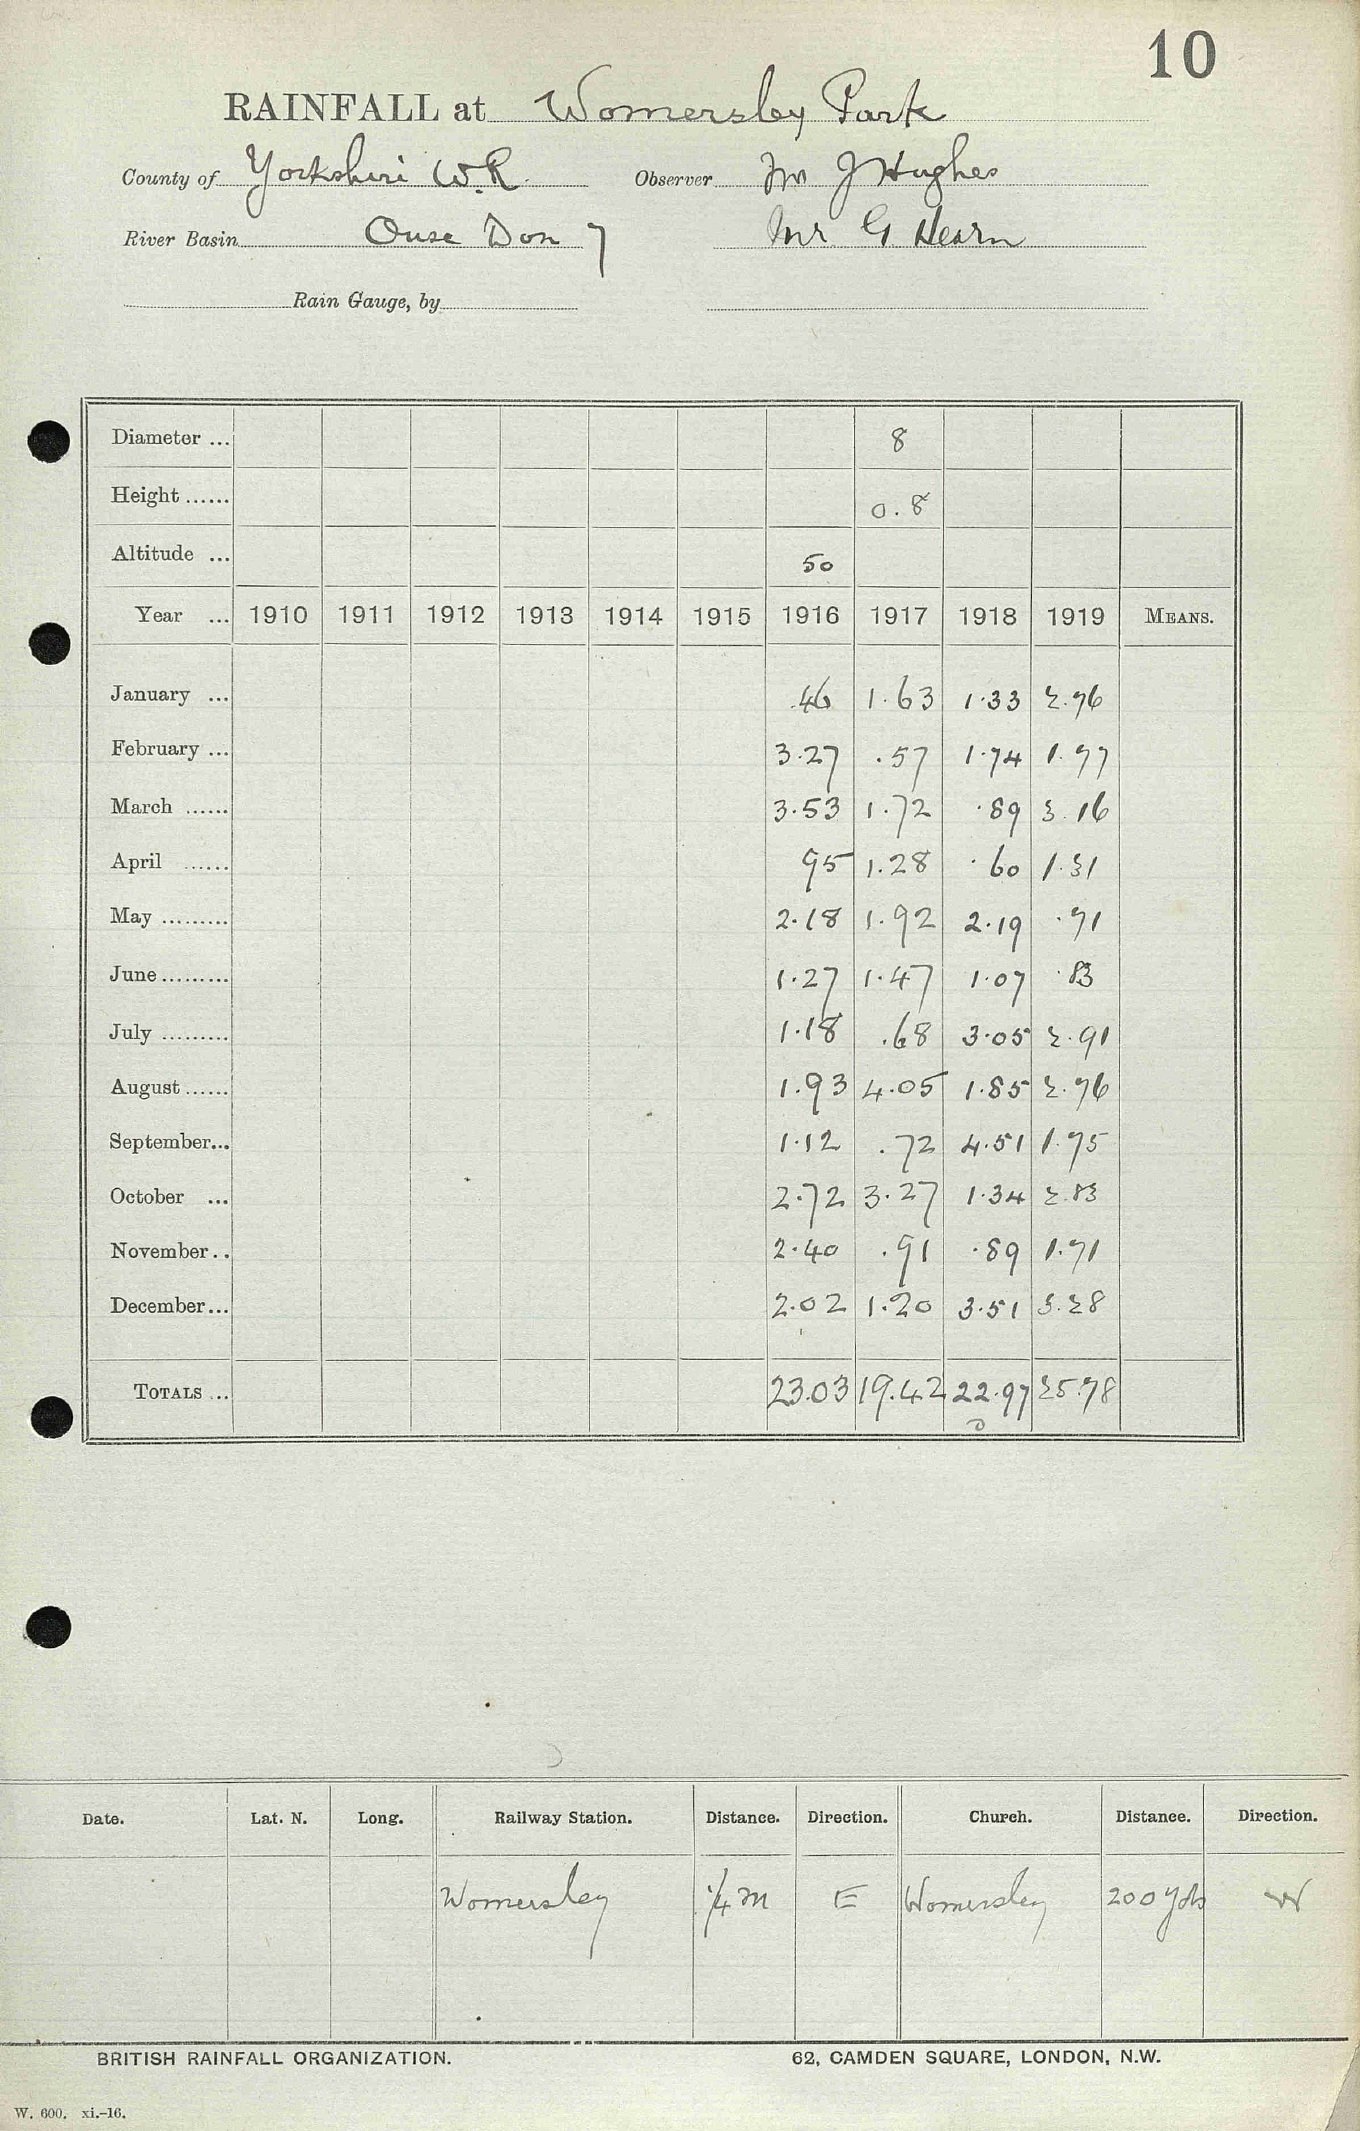 10
RAINFALL at Womersley Park
County of Yorkshire W.R. Observer Mr J Hughes
River Basin Ouse Don 7 Mr G Hearn
Rain Gauge, by
Diameter ... 8
Height ...... 0.8
Altitude ... 50
Year ... 1910 1911 1912 1913 1914 1915 1916 1917 1918 1919 MEANS.
January ... .46 1.63 1.33 2.76
February ... 3.27 .57 1.74 1.77
March ...... 3.53 1.72 .89 3.16
April ...... 95 1.28 .60 1.31
May ......... 2.18 1.92 2.19 .71
June ......... 1.27 1.47 1.07 .83
July ......... 1.18 .68 3.05 2.91
August ...... 1.93 4.05 1.85 2.76
September... 1.12 .72 4.51 1.75
October ... 2.72 3.27 1.34 2.83
November.. 2.40 .91 .89 1.71
December... 2.02 1.20 3.51 3.28
TOTALS ... 23.03 19.42 22.97 25.78
Date. Lat. N. Long. Railway Station. Distance. Direction. Church. Distance. Direction.
Womersley 1/4 m E Womersley 200 yds W
BRITISH RAINFALL ORGANIZATION. 62, CAMDEN SQUARE, LONDON, N.W.
W. 600. xi.-16.